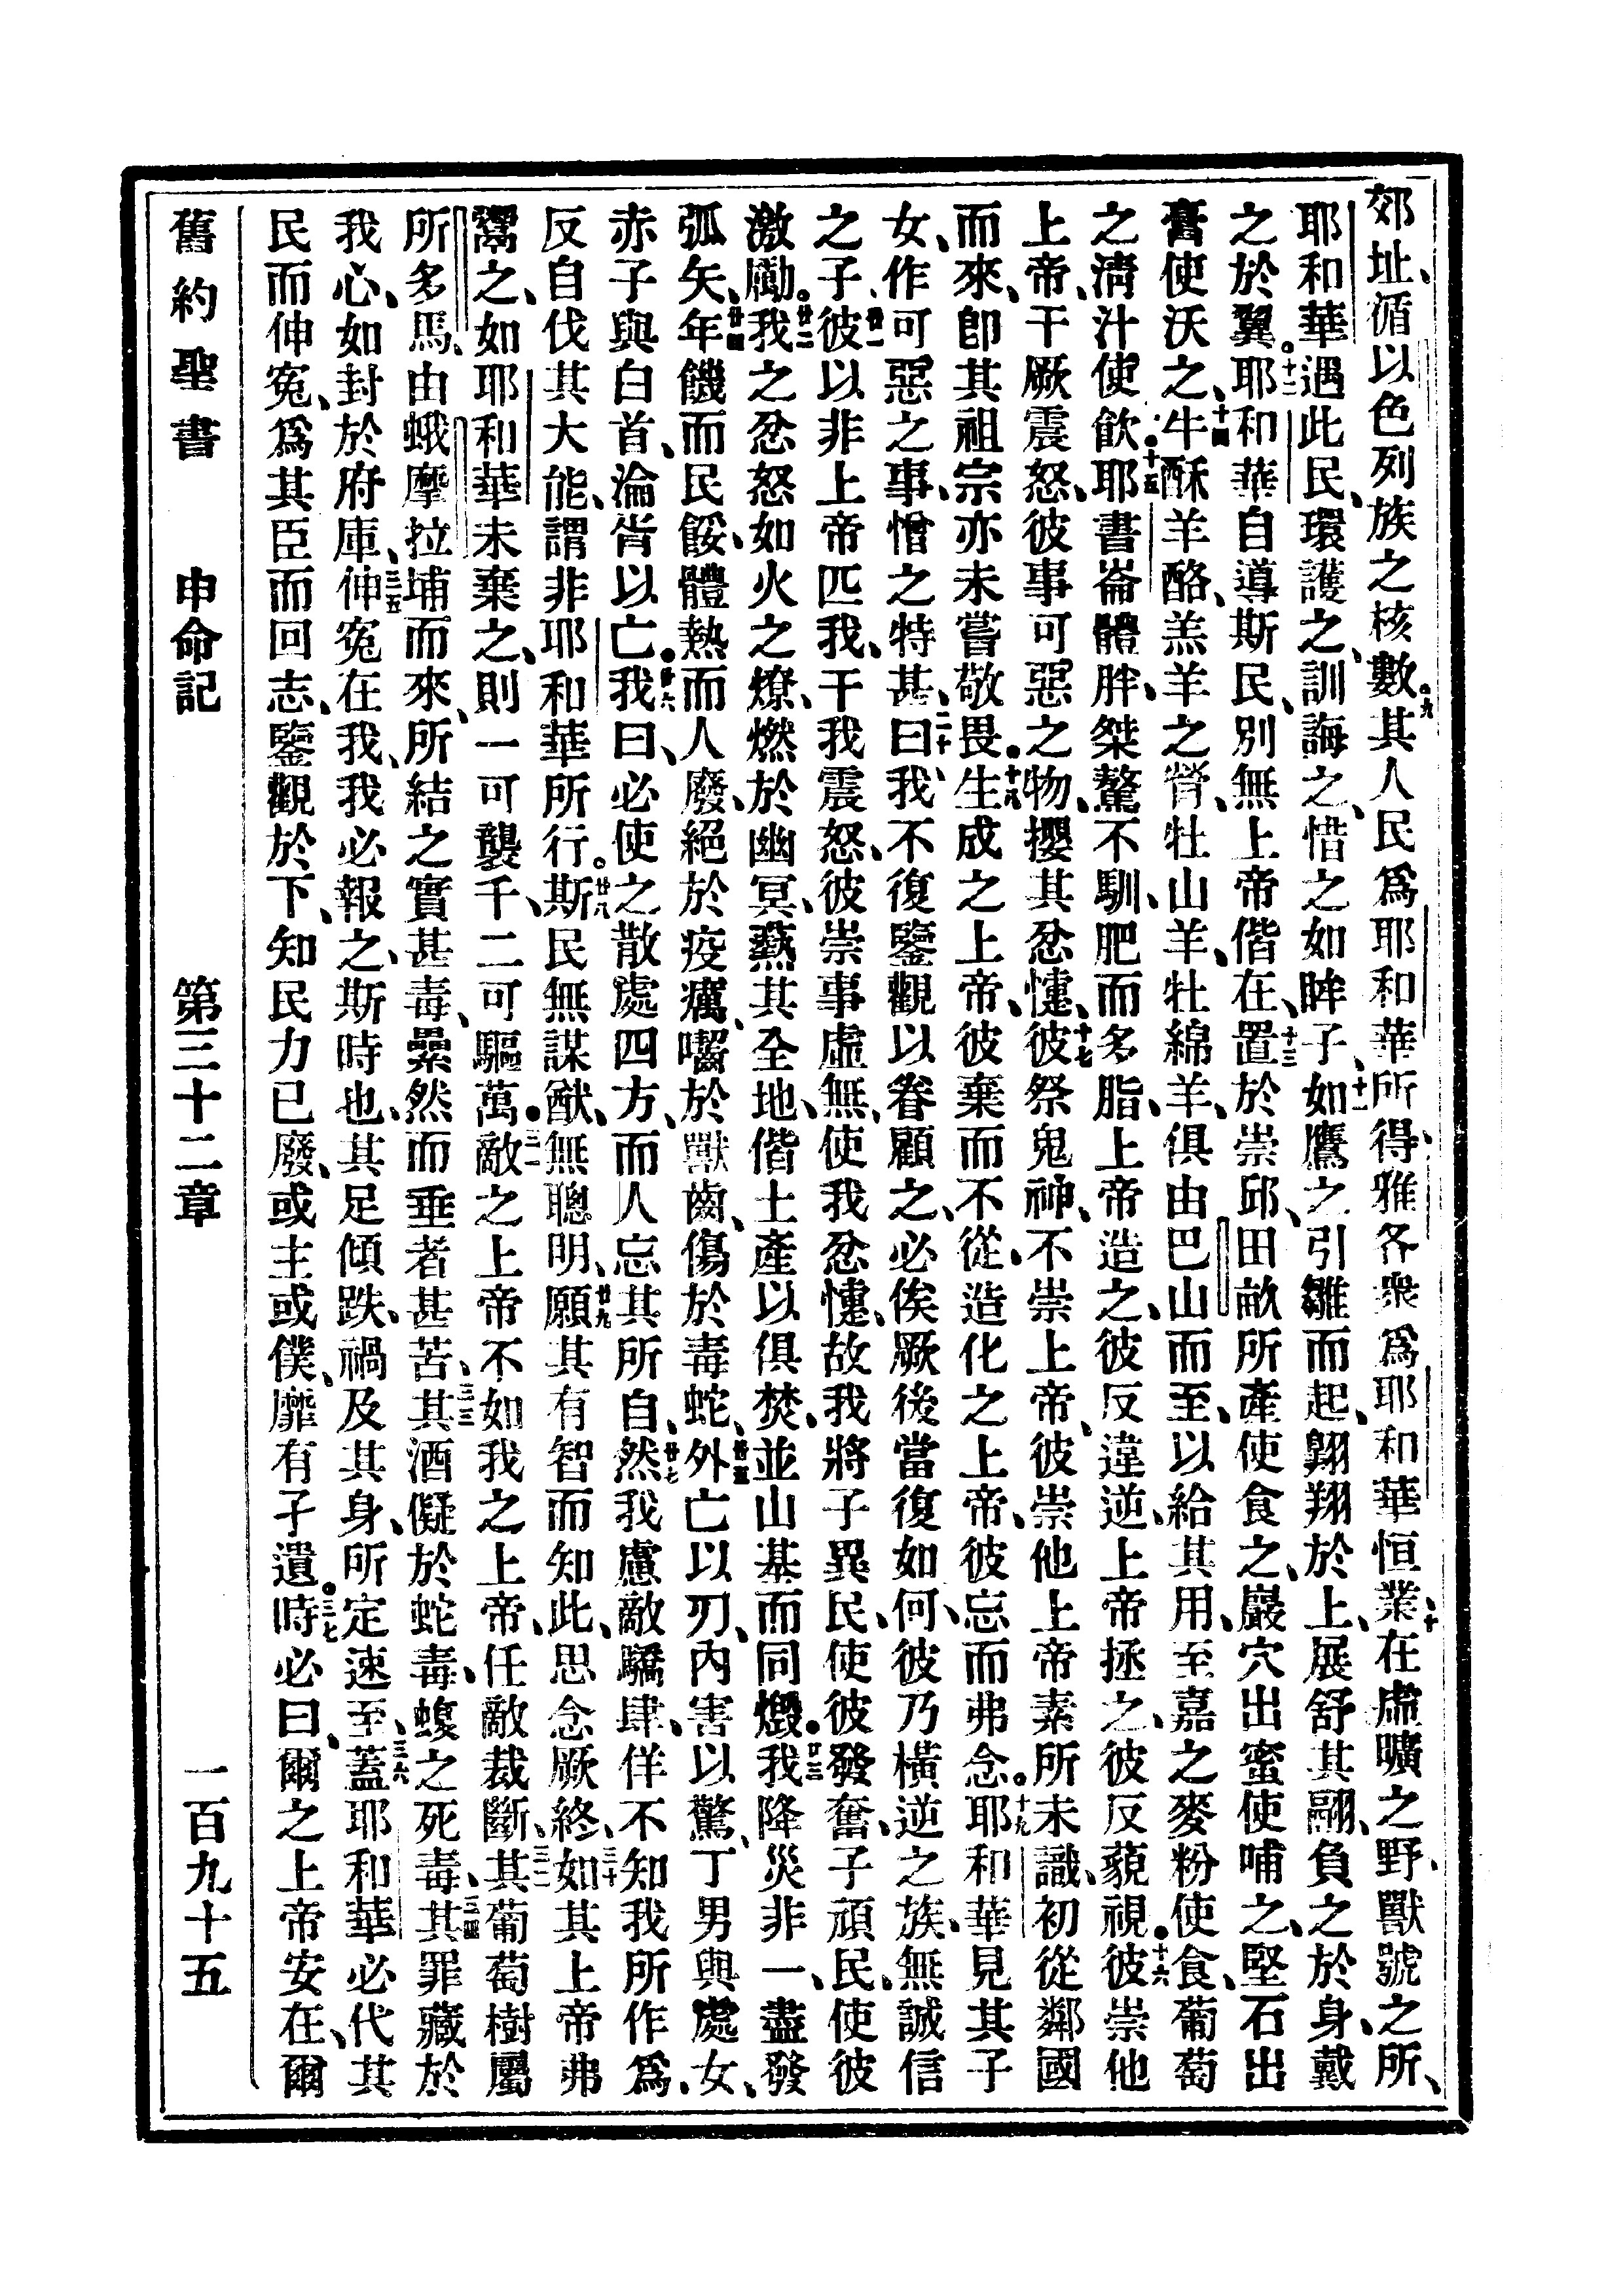 郊址、循以色列族之核數。九其人民爲耶和華所得、雅各衆爲耶和華恒業、十在虛曠之野、獸號之所、
耶和華遇此民、環護之、訓誨之、惜之如眸子、十一如鷹之引雛而起、翺翔於上、展舒其翮、負之於身、戴
之於翼。十二耶和華自導斯民、別無上帝偕在、十三置於崇邱、田畝所產使食之、巖穴出蜜使哺之、堅石出
膏使沃之、十四牛酥羊酪、羔羊之膋、牡山羊、牡綿羊、俱由巴山而至、以給其用、至嘉之麥粉使食、葡萄
之淸汁使飮。十五耶書崙體胖、桀驁不馴、肥而多脂、上帝造之、彼反違逆、上帝拯之、彼反藐視。十六彼崇他
上帝、干厥震怒、彼事可惡之物、攖其忿懥、十七彼祭鬼神、不崇上帝、彼崇他上帝素所未識、初從鄰國
而來、卽其祖宗亦未嘗敬畏。十八生成之上帝、彼棄而不從、造化之上帝、彼忘而弗念。十九耶和華見其子
女、作可惡之事、憎之特甚、二十曰、我不復鑒觀以眷顧之、必俟厥後當復如何、彼乃橫逆之族、無誠信
之子、廿一彼以非上帝匹我、干我震怒、彼崇事虛無、使我忿懥、故我將子異民、使彼發奮、子頑民、使彼
激勵。廿二我之忿怒如火之燎、燃於幽冥、爇其全地、偕土產以俱焚、並山基而同燬。廿三我降災非一、盡發
弧矢、廿四年饑而民餒、體熱而人廢、絕於疫癘、囓於獸齒、傷於毒蛇、廿五外亡以刃、內害以驚、丁男與處女、
赤子與白首、淪胥以亡。廿六我曰、必使之散處四方、而人忘其所自、廿七然我慮敵驕肆、佯不知我所作爲、
反自伐其大能、謂非耶和華所行。廿八斯民無謀猷、無聰明、廿九願其有智而知此、思念厥終、三十如其上帝弗
鬻之、如耶和華未棄之、則一可襲千、二可驅萬。三一敵之上帝不如我之上帝、任敵裁斷、三二其葡萄樹屬
所多馬、由蛾摩拉埔而來、所結之實甚毒、纍然而垂者甚苦、三三其酒儗於蛇毒、蝮之死毒、三四其罪藏於
我心、如封於府庫、三五伸寃在我、我必報之、斯時也、其足傾跌、禍及其身、所定速至、三六蓋耶和華必代其
民而伸寃、爲其臣而回志、鑒觀於下、知民力已廢、或主或僕、靡有孑遺。三七時必曰、爾之上帝安在、爾
舊約聖書　申命記　第三十二章　一百九十五